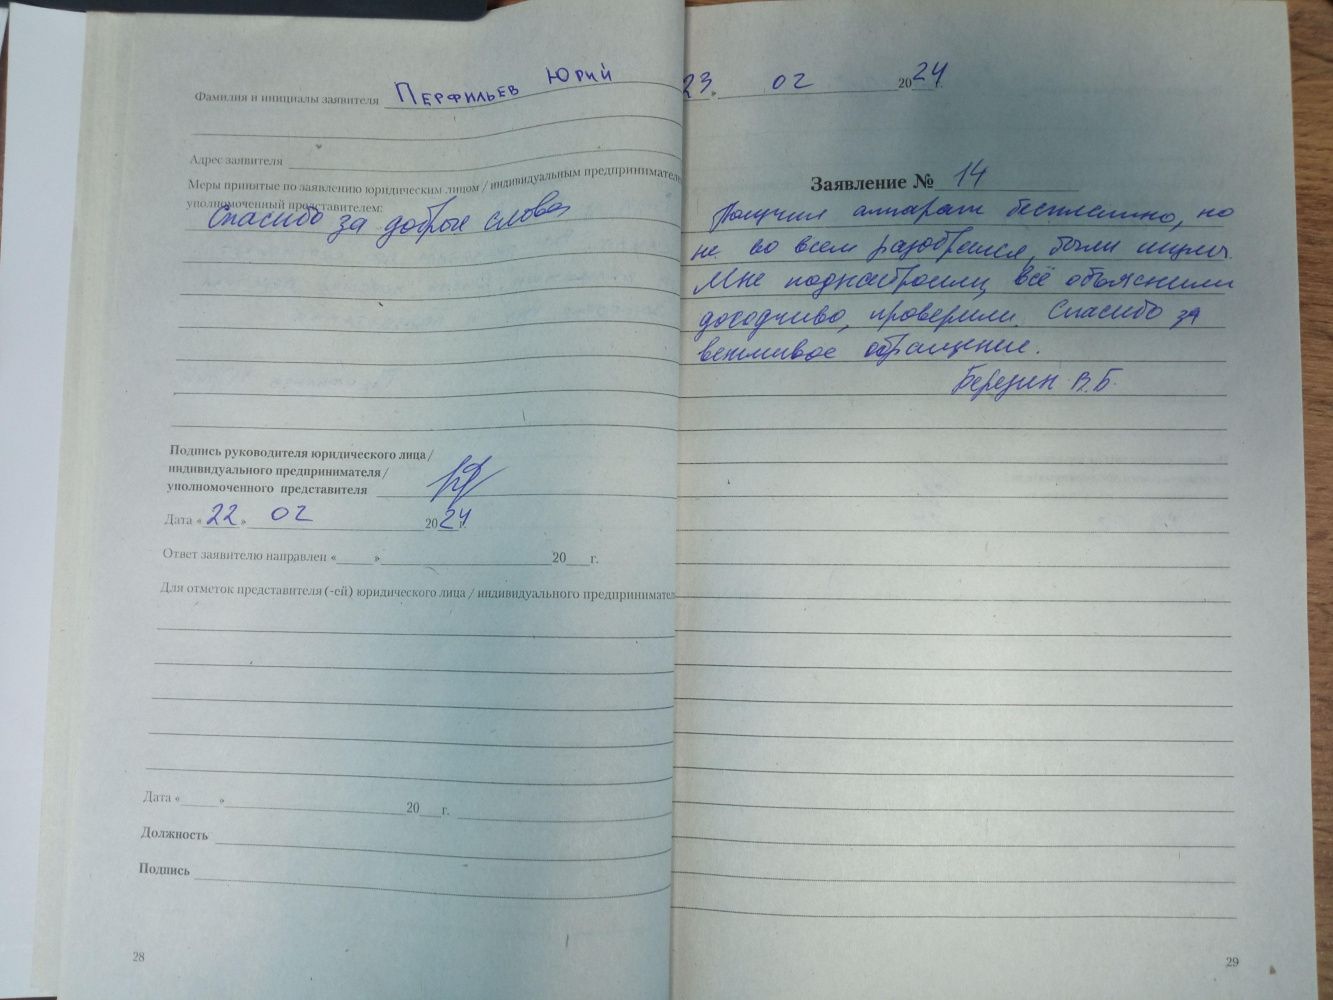 Фамилия и инициалы заявителя Перфильев Юрий
Адрес заявителя
Меры принятые по заявлению юридическим лицом / индивидуальным предпринимателе
уполномоченный представителем:
Спасибо за добрые слова
Подпись руководителя юридического лица/
индивидуального предпринимателя/
уполномоченного представителя
Дата «22» 02 2024 г.
Ответ заявителю направлен «____» ____ 20__г.
Для отметок представителя (-ей) юридического лица / индивидуального предпринимател
Дата «____» ____ 20__г.
Должность
Подпись
28
23. 02 2024 г.
Заявление № 14
Получил аппарат бесплатно, но
не во всем разобрался, были
Мне поднастроили, всё объяснили
доходчиво, проверили. Спасибо за
вежливое обращение.
Березин В.Б.
29